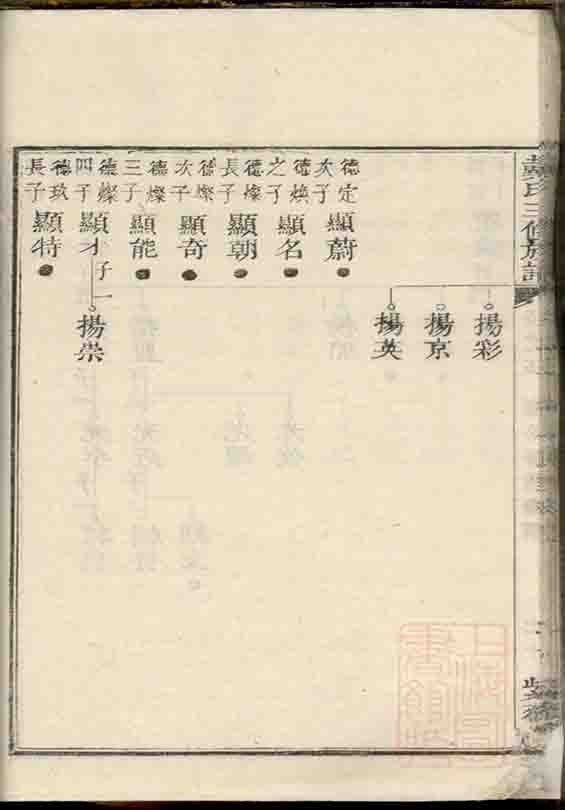 氏三修族譜
揚彩
揚京
揚英
德定次子
顯蔚
德煥之子
顯名
德燦長子
顯朝
德燦次子
顯奇
德燦三子
顯能
德燦四子
顯才
子一
揚崇
德玖長子
顯特
上海圖
書館藏